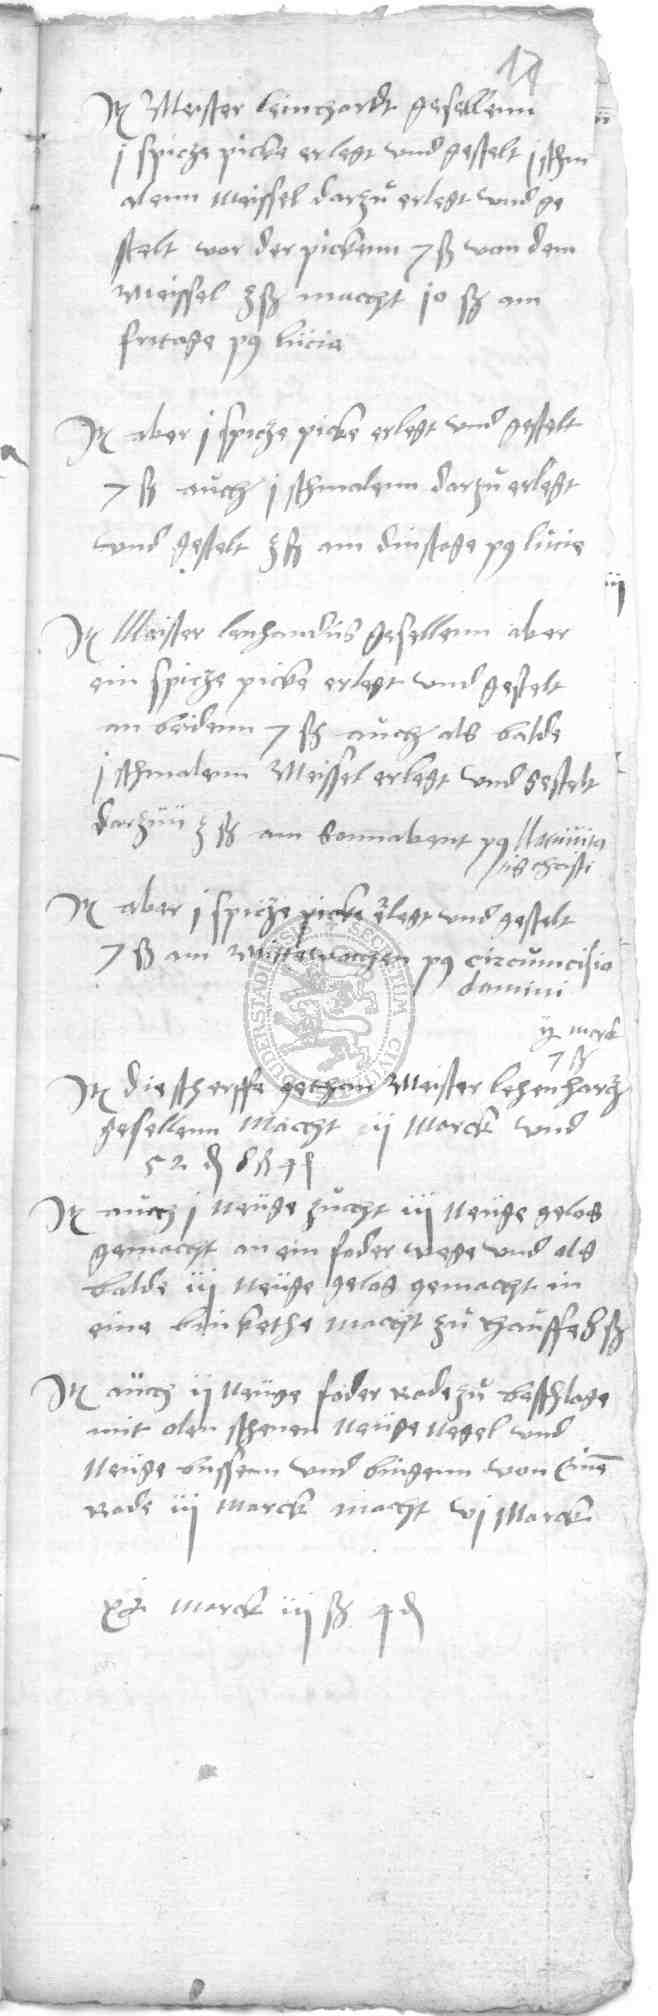 17
It Meister leinhardt gesellenn
j spicze picke erlegt und gestelt j schm
alenn Meissel darzu erlegt und ge
stelt vor der pickenn 7 ß von dem
Meissel 3 ß macht 10 ß am
fritage p9 lucie
It aber j spicze picke erlegt und gestelt
7 ß auch j schmalenn darzu erlegt
und gestelt 3 ß am dinstage p9 lucie
It Meister lenhardus gesellenn aber
ein spicze picke erlegt und gestelt
an beidenn 7 ß auch als balde
j schmalenn Meissel erlegt und gestelt
darzuu 3 ß am Sonnabent p9 Nativita
tis christi
It aber j spicze picke erlegt und gestelt
7 ß am Mittewochen p9 circumcisio
domini
ij marck
7 ß
It die scherffe gethan Meister lehenhartz
gesellenn Macht ij Marck und
52 d 8 ß 4
It auch j Neuge zucht iij Neuge gelos
gemacht an ein foder wege und als
balde iij Neuge gelos gemacht in
eine macht zu hauffe 8 ß
It auch ij Neuge foder Rade zu beschlage
mit alen schenen Neuge Negel und
Neuge bussenn und bingenn von eine
Rade iij Marck macht vj Marck
Marck iij ß 4 d
SIGILLUM SECRETUM CIVIUM DUDERSTADENSIS